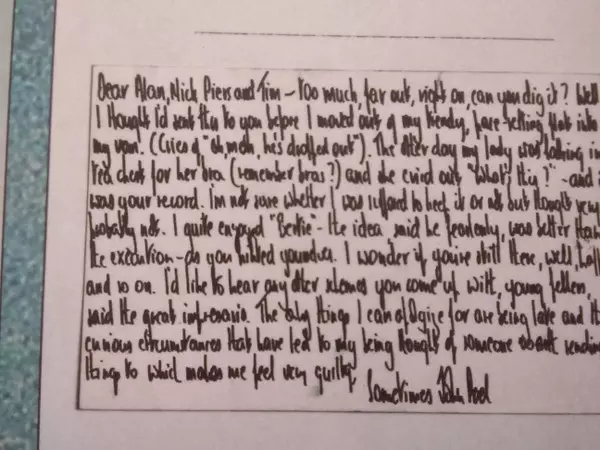 Dear Alan, Nick Piers and Tim – Too much, far out, right on, can you dig it? Well
I thought I'd send this to you before I moved out of my trendy, pace-setting, flat into
my van. (Cries of "oh, mah, he's dropped out"). The other day my lady was looking in
tea chest for her bra (remember bras?) and she cried out "What's this?" - and it
was your record. I'm not sure whether I was supposed to keep it or not but thought very
probably not. I quite enjoyed "Bertie" - the idea, said he fearlessly, was better than
the execution - do you
and so on. I'd like to hear any other schemes you come up with, young fellers,
said the great impresario. The only things I can apologise for are being late and the
curious circumstances that have led to my being thought of someone worth sending
things to which makes me feel very guilty.
Sometimes John Peel